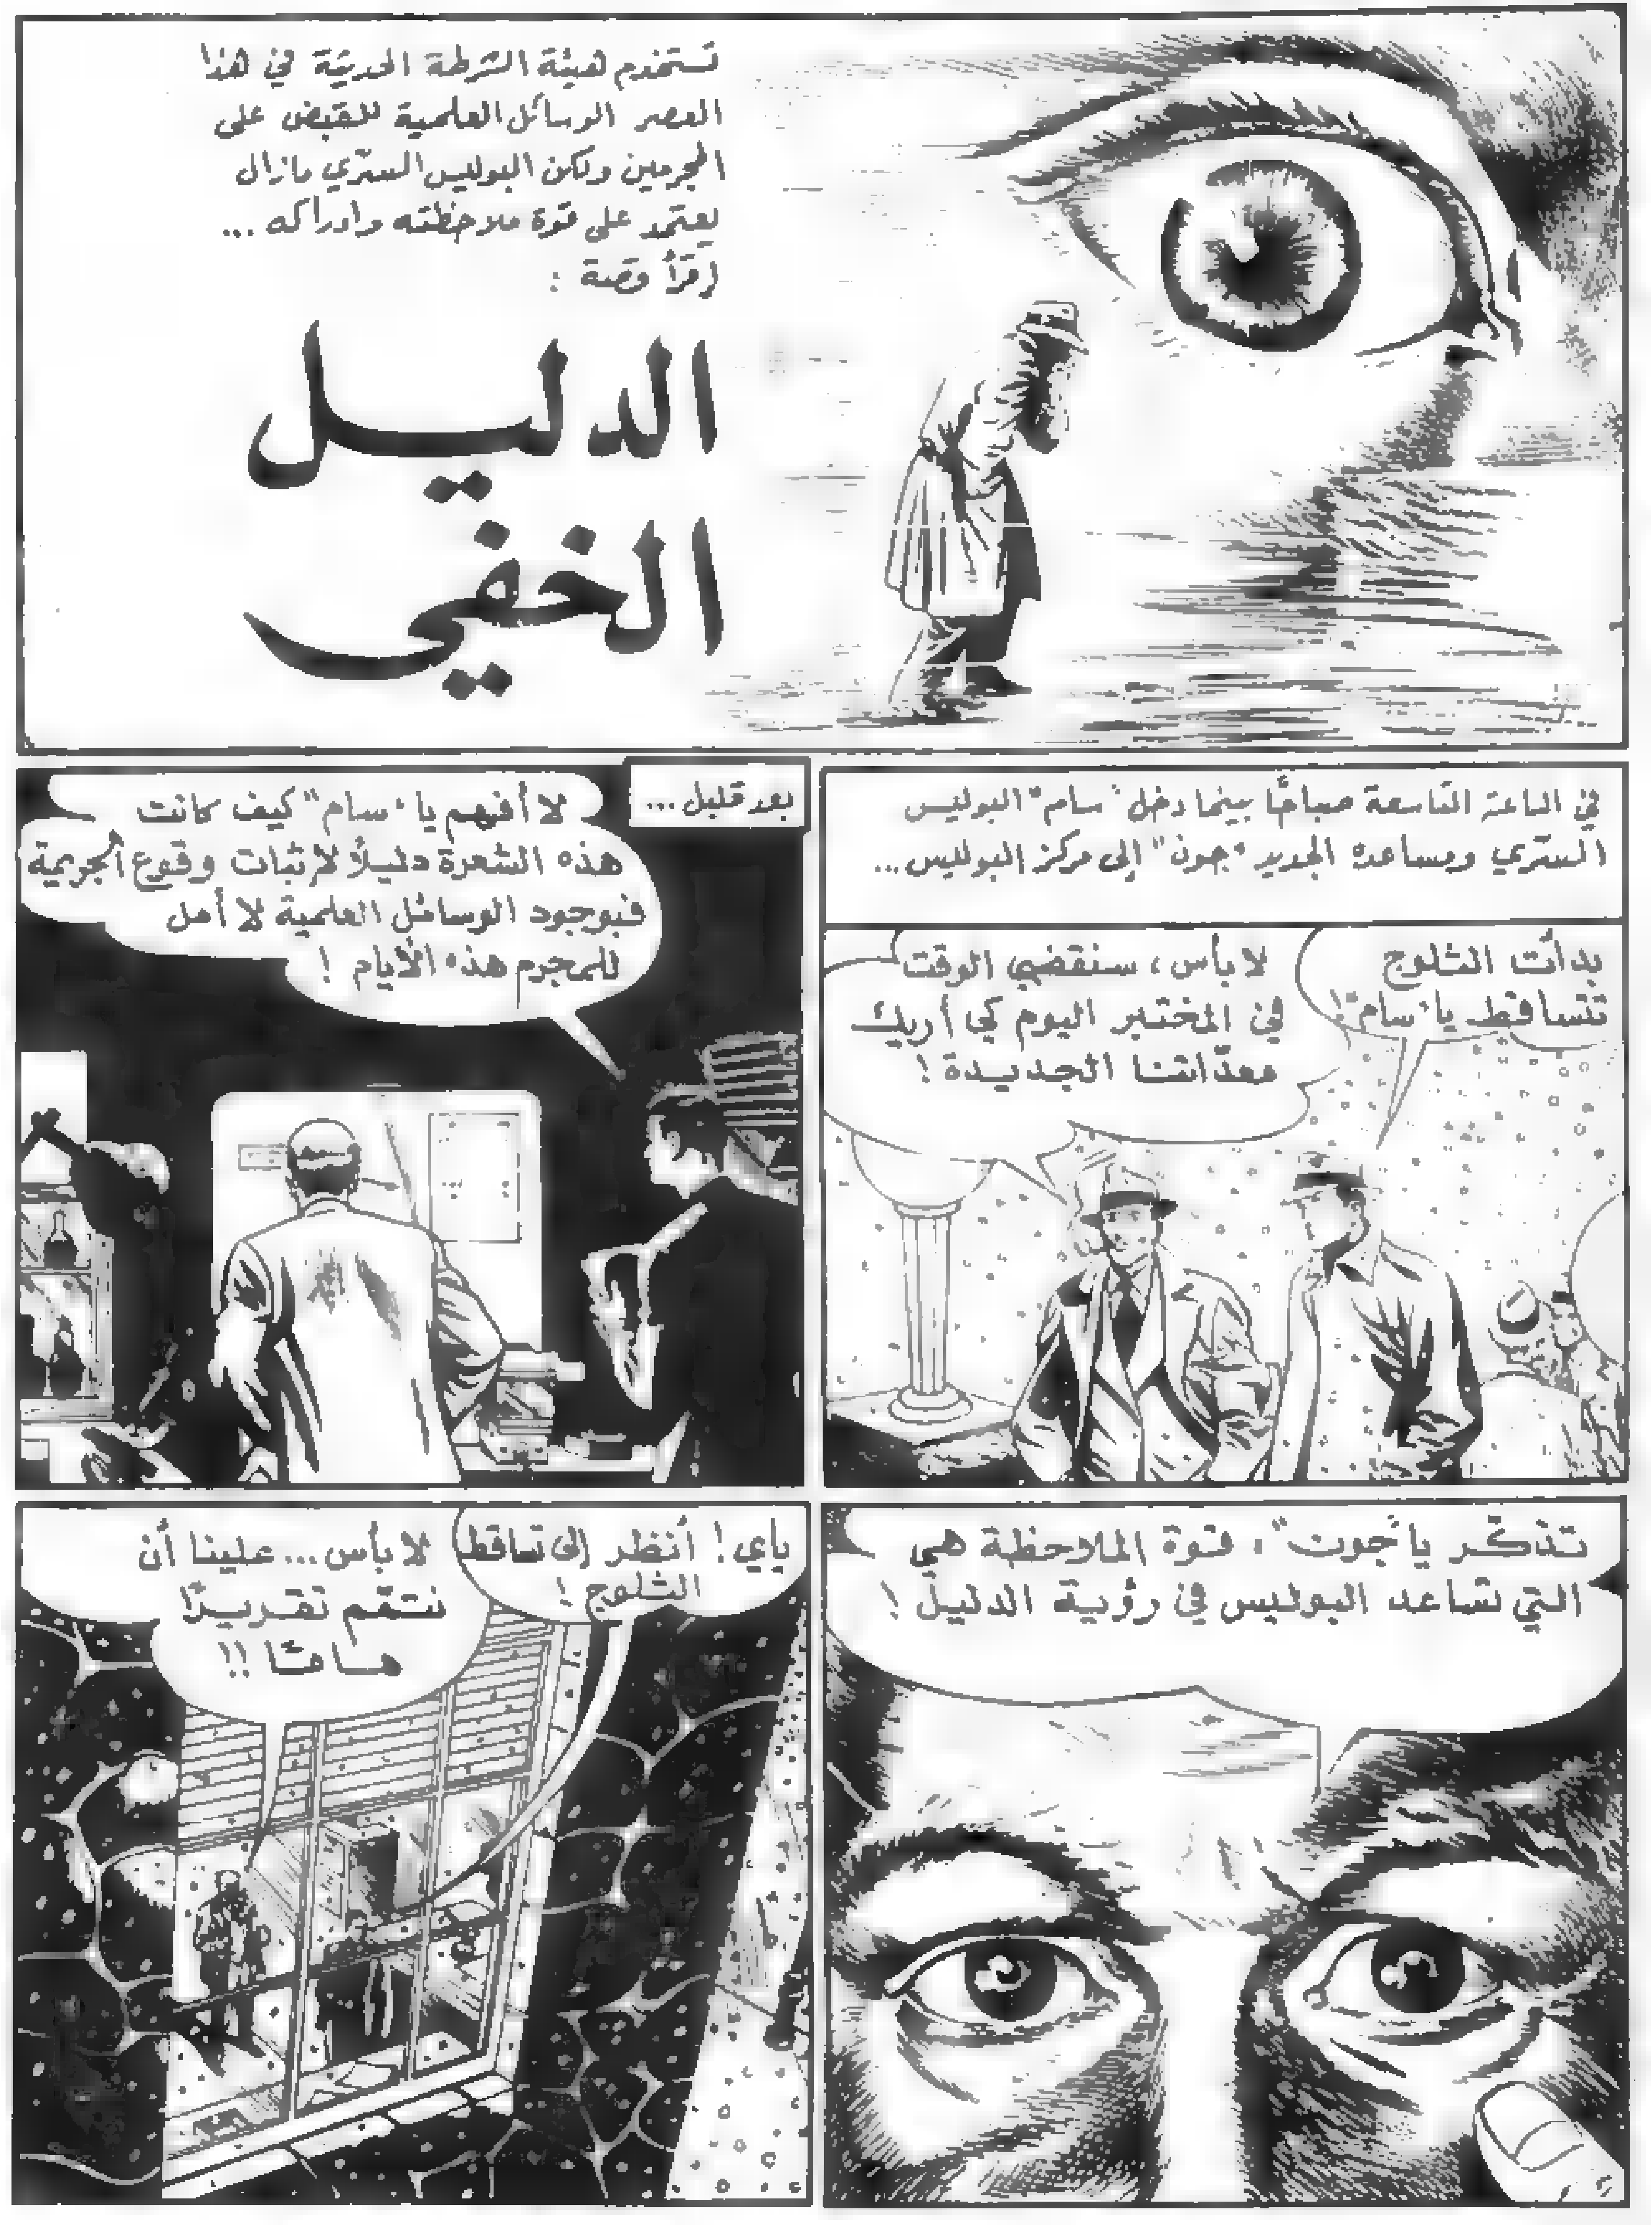 تستخدم هيئة الشرطة الحديثة في هذا
العصر الوسائل العلمية للقبض على
المجرمين ولكن البوليس السرّي مازال
يعتمد على قوة ملاحظته وادراكه ...
إقرأ قصة :
الدليل
الخفي
في الساعة التاسعة صباحًا بينما دخل "سام" البوليس
السرّي ومساعده الجديد "جون" إلى مركز البوليس ...
بدأت الثلوج
تتساقط يا "سام"!
لا بأس ، سنقضي الوقت
في المختبر اليوم كي أريك
معدّاتنا الجديدة !
بعد قليل ...
لا أفهم يا "سام" كيف كانت
هذه الشعرة دليلاً لإثبات وقوع الجريمة
فبوجود الوسائل العلمية لا أمل
للمجرم هذه الأيام !
تذكّر يا "جون" ، قوة الملاحظة هي
التي تساعد البوليس في رؤية الدليل !
ياي ! أنظر إلى تساقط
الثلوج !
لا بأس ... علينا أن
نتمّم تقريرًا
هامًا !!